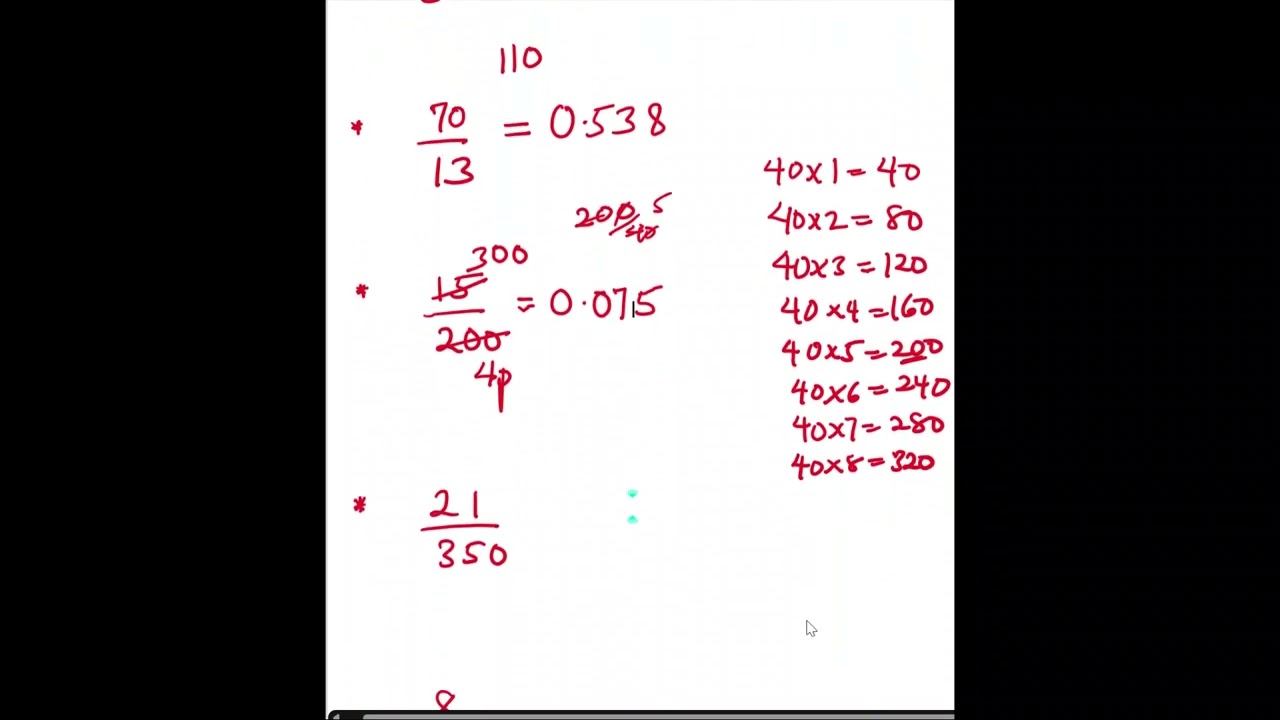 110
* 70/13 = 0.538
200/40 5
300
* 15/200 = 0.075
40
* 21/350
8
40x1=40
40x2=80
40x3=120
40x4=160
40x5=200
40x6=240
40x7=280
40x8=320